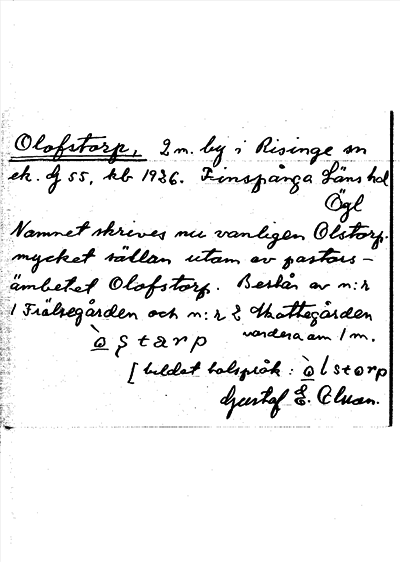 Olofstorp, 2 m. by i Risinge sn
ek. bl 55, kb 1936. Finspånga Läns hd
Ögl
Namnet skrives nu vanligen Olstorp.
mycket sällan utom av pastors-
ämbetet Olofstorp. Består av n:r
1 Frälsegården och n:r 2 Skattegården
vardera om 1 m.
starp
[bildat talspråk: òlstorp
Gustaf E.